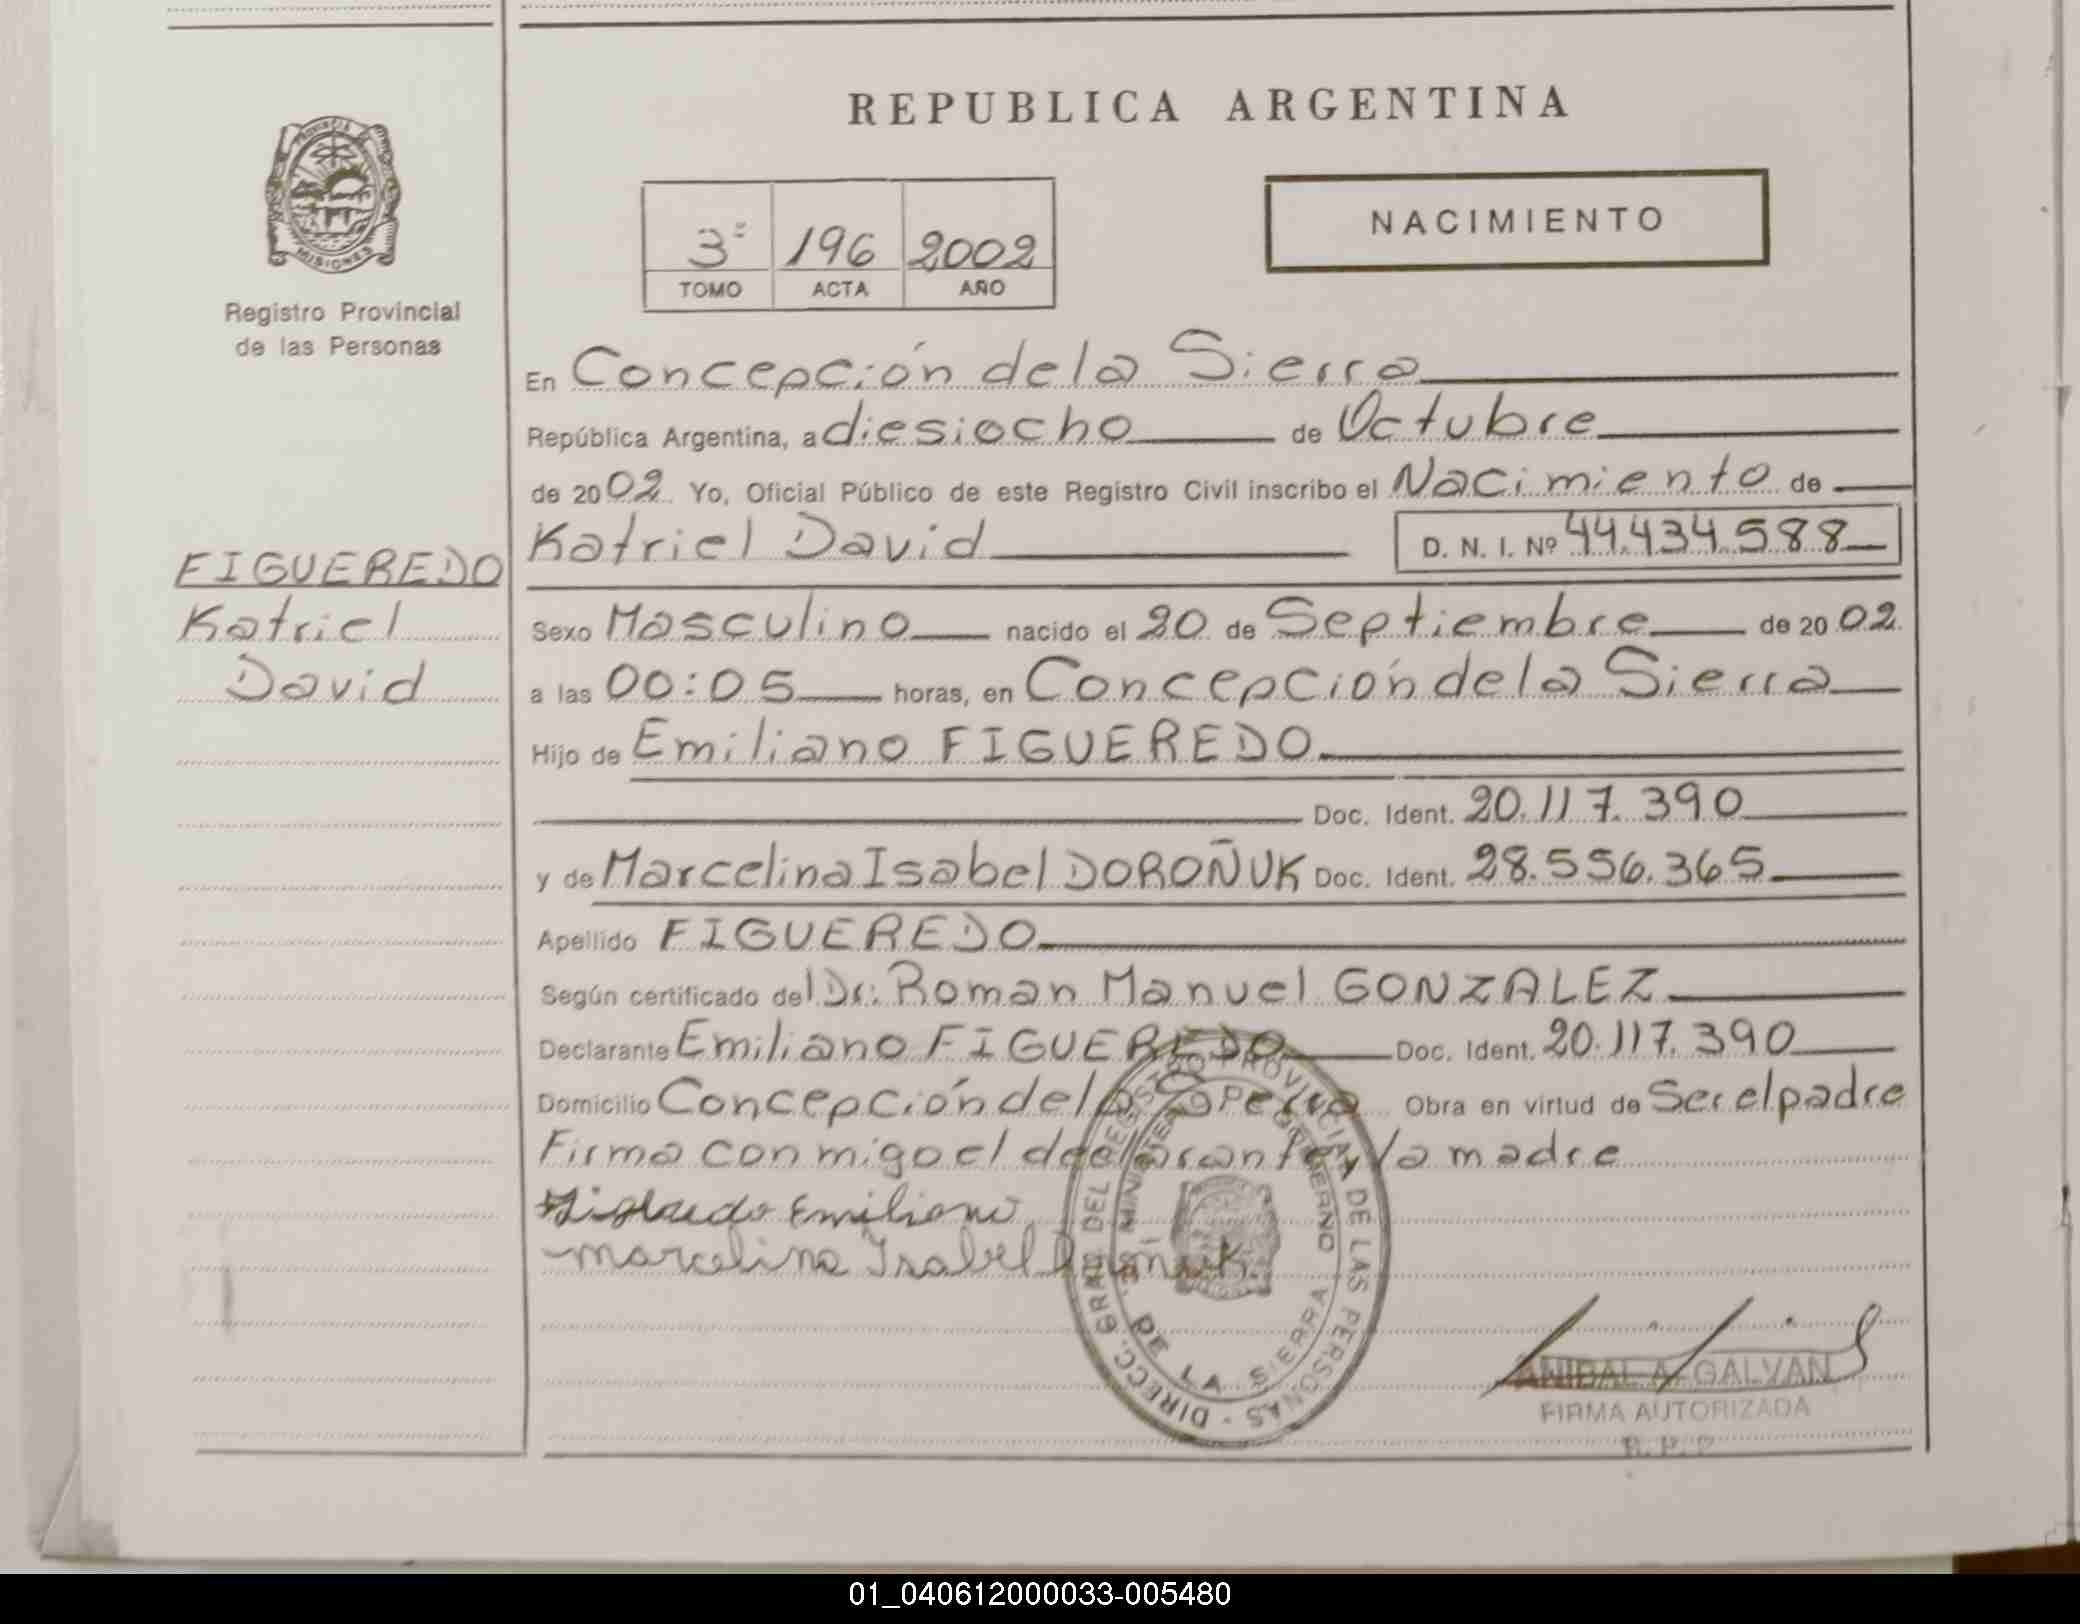 REPUBLICA ARGENTINA
PROVINCIA DE MISIONES
Registro Provincial
de las Personas
3º 196 2002
TOMO ACTA AÑO
NACIMIENTO
En Concepción de la Sierra
República Argentina, a diesiocho de Octubre
de 2002 Yo, Oficial Público de este Registro Civil inscribo el Nacimiento de
Katriel David D. N. I. Nº 44.434.588
FIGUEREDO
Katriel
David
Sexo Masculino nacido el 20 de Septiembre de 2002
a las 00:05 horas, en Concepción de la Sierra
Hijo de Emiliano FIGUEREDO
Doc. Ident. 20.117.390
y de Marcelina Isabel DOROÑUK Doc. Ident. 28.556.365
Apellido FIGUEREDO
Según certificado del Dr: Roman Manuel GONZALEZ
Declarante Emiliano FIGUEREDO Doc. Ident. 20.117.390
Domicilio Concepción de la Sierra Obra en virtud de Ser el padre
Firma conmigo el declarante y la madre
Figueredo Emiliano
Marcelina Isabel Doroñuk.
DIRECC. GRAL. DEL REGISTRO PROVINCIAL DE LAS PERSONAS -
MINISTERIO DE GOBIERNO
DE LA SIERRA
ANIBAL A. GALVAN
FIRMA AUTORIZADA
R. P. P
01_040612000033-005480